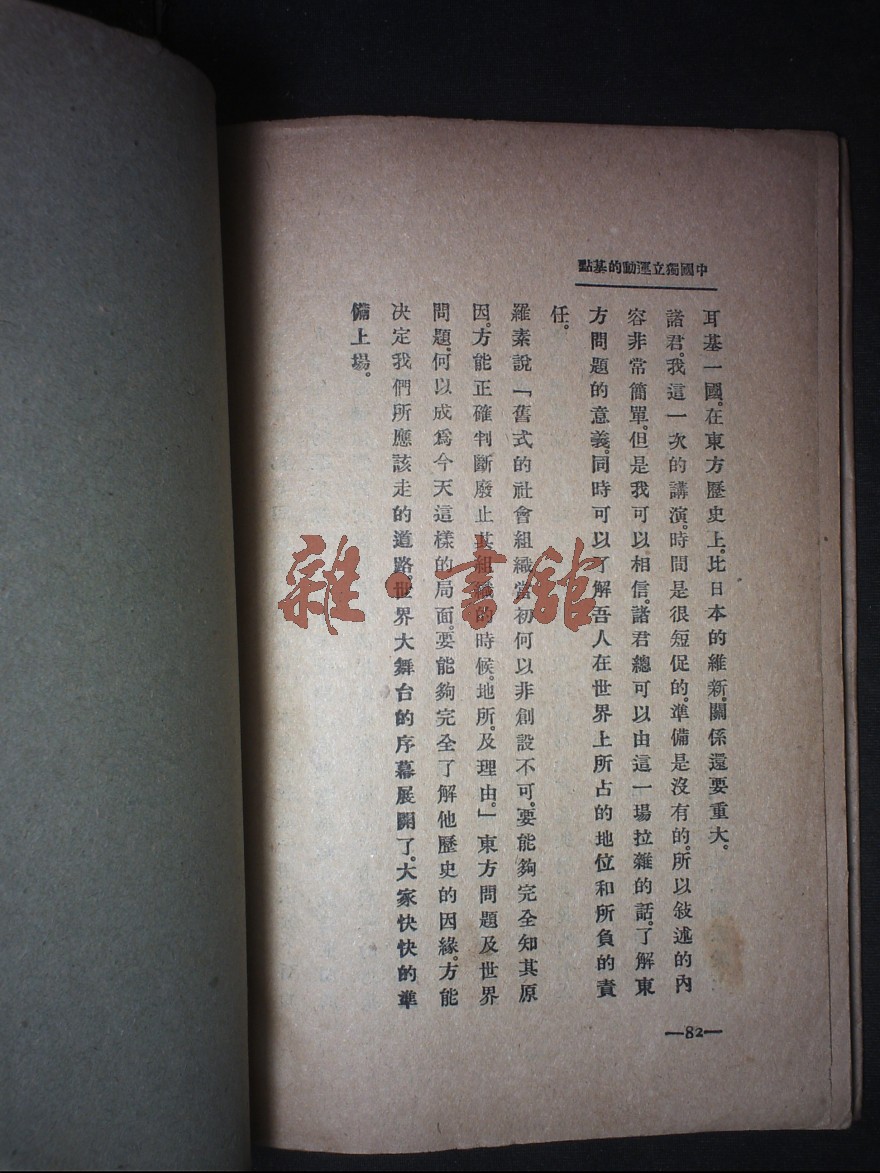 中國獨立運動的基點
耳基一國。在東方歷史上。比日本的維新。關係還要重大。
諸君。我這一次的講演。時間是很短促的。準備是沒有的。所以敍述的內
容非常簡單。但是我可以相信。諸君總可以由這一場拉雜的話。了解東
方問題的意義。同時可以了解吾人在世界上所占的地位和所負的責
任。
羅素說「舊式的社會組織當初何以非創設不可。要能夠完全知其原
因。方能正確判斷廢止其組織的時候。地所。及理由。」東方問題及世界
問題。何以成爲今天這樣的局面。要能夠完全了解他歷史的因緣。方能
决定我們所應該走的道路。世界大舞台的序幕展開了。大家快快的準
備上場。
—82—
雜·書館